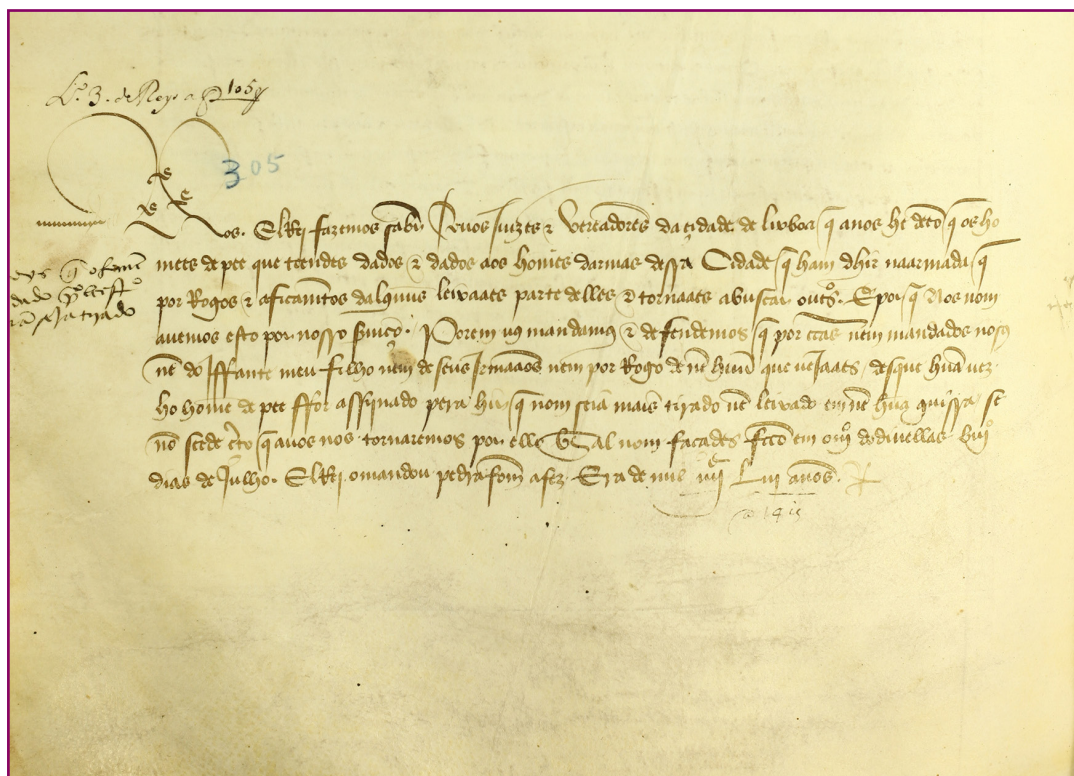 L.º 3. de Reys a f 105
305
Nos ElRei fazemos saber A vos Juizes & Vereadores da cidade de lixboa q̃ a nos he dcõ q̃ os ho
mẽes de pee que teendes dados & dados aos homẽes darmas dessa Cidade q̃ ham dhir na armada q̃
por Rogos & aficamtos dalgũus leixaaes parte delles & tornaaes a buscar outºs. E por q̃ Nos nom
auemos esto por nosso ſuiço. Porem uꝯ mandamꝯ & defendemos q̃ por ctãs nem mandados nosꝯ
nẽ do Iffante meu filho nem de seus Jrmaãos nem por Rogo de nẽ hũu que ueJaaes, des que hũa uez
ho home de pee ffor assijnado pera hir q̃ nom seia mais tirado nẽ leixado em nẽ hũa guissa, se
nõ seede çto q̃ a uos nos tornaremos por ello. Al nom façades. fcõ em dodiuellas
dias de Julho. ElRei o mandou pedrafom a fez. Era de mil iiij Liij anos.